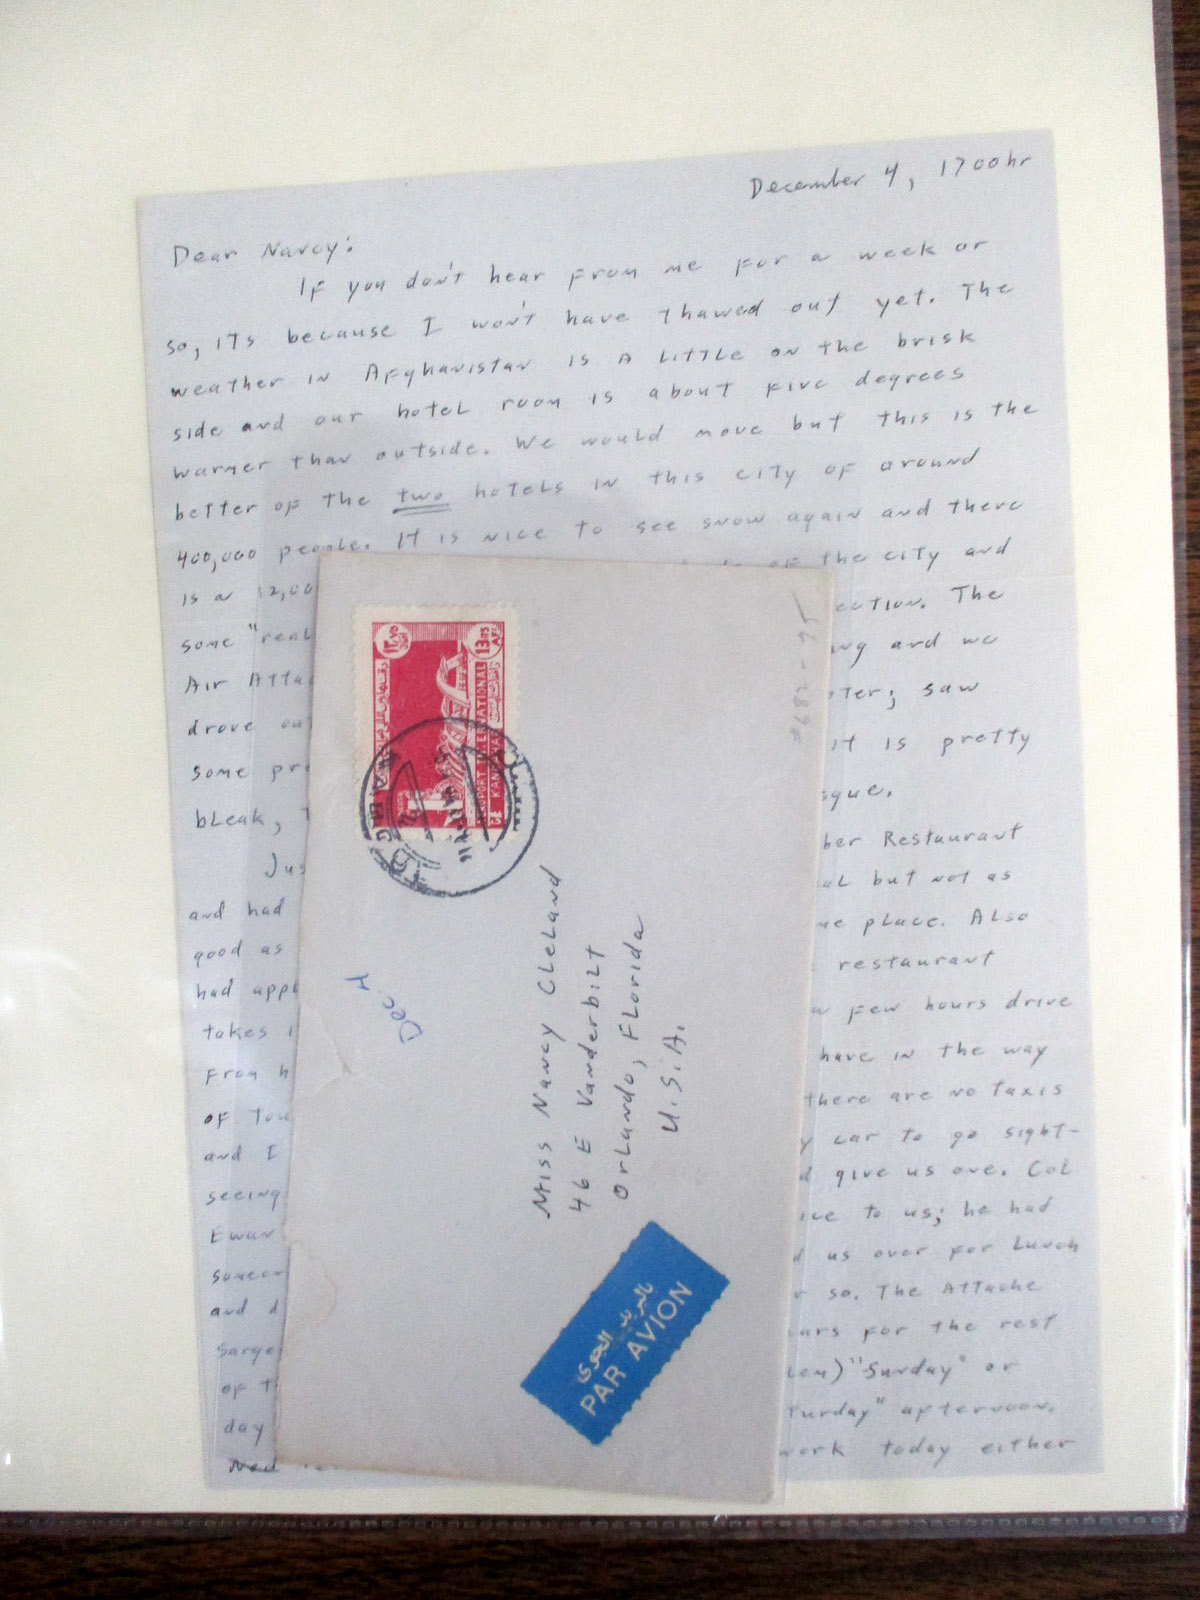 December 4, 1700hr
Dear Nancy:
If you don't hear from me for a week or
so, its because I won't have thawed out yet. The
weather in Afghanistan is a little on the brisk
side and our hotel room is about five degrees
warmer than outside. We would move but this is the
better of the two hotels in this city of around
400,000 people. It is nice to see snow again and there
is a 12,00 of the city and
some "real ection. The
Air Attac ng and we
drove out ter; saw
some pre it is pretty
bleak, sque.
Jus ber Restaurant
and had al but not as
good as ne place. Also
had appl restaurant
takes i a few hours drive
from h have in the way
of tou there are no taxis
and I y car to go sight-
seeing d give us one. Col
Ewan ice to us; he had
someon d us over for lunch
and d r so. The Attache
Sarge ars for the rest
of t len) "Sunday" or
day turday" afternoon.
work today either
13 PS
AFG
AIRPORT INTERNATIONAL
DE KANDAHAR
Miss Nancy Cleland
46 E Vanderbilt
Orlando, Florida
U.S.A.
Dec. 4
#682-95
بالبريد الجوى
PAR AVION